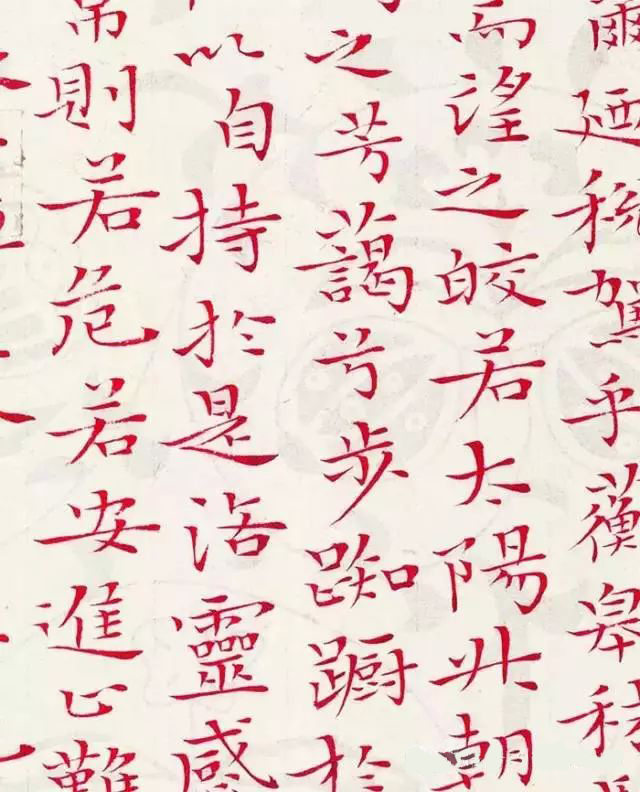 爾迺税駕乎蘅皋秣
而望之皎若太陽升朝
之芳藹兮步踟躕於
以自持於是洛靈感
常則若危若安進止難